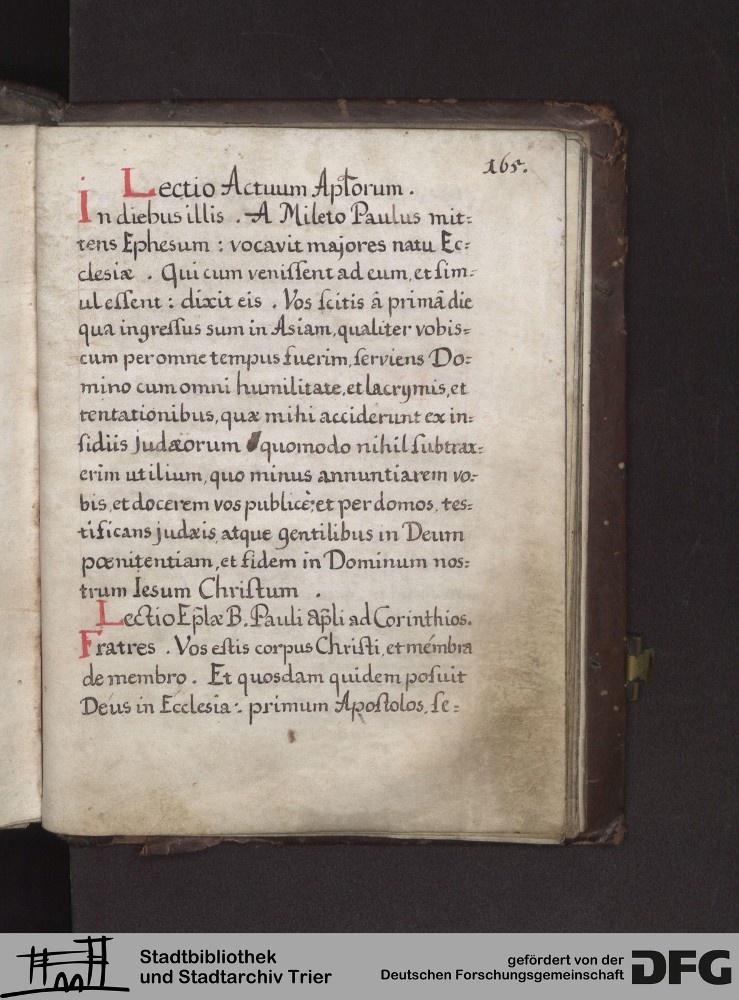 165.
Lectio Actuum Aptorum .
In diebus illis . A Mileto Paulus mit=
tens Ephesum : vocavit majores natu Ec=
clesiæ . Qui cum veniſſent ad eum, et ſim=
ul eſſent : dixit eis . Vos ſcitis â primâ die
qua ingreſſus sum in Asiam, qualiter vobis=
cum per omne tempus fuerim, ſerviens Do=
mino cum omni humilitate, et lacrymis, et
tentationibus, quæ mihi acciderunt ex in=
ſidiis judæorum quomodo nihil ſubtrax=
erim utilium, quo minus annuntiarem vo=
bis, et docerem vos publicè; et per domos, tes=
tificans judæis, atque gentilibus in Deum
pœnitentiam, et fidem in Dominum nos=
trum Iesum Chriſtum .
Lectio Eplæ B. Pauli apli ad Corinthios.
Fratres . Vos eſtis corpus Chriſti, et mémbra
de membro . Et quosdam quidem poſuit
Deus in Ecclesia : primum Apoſtolos, ſe=
Stadtbibliothek
und Stadtarchiv Trier
gefördert von der
Deutschen Forschungsgemeinschaft
DFG